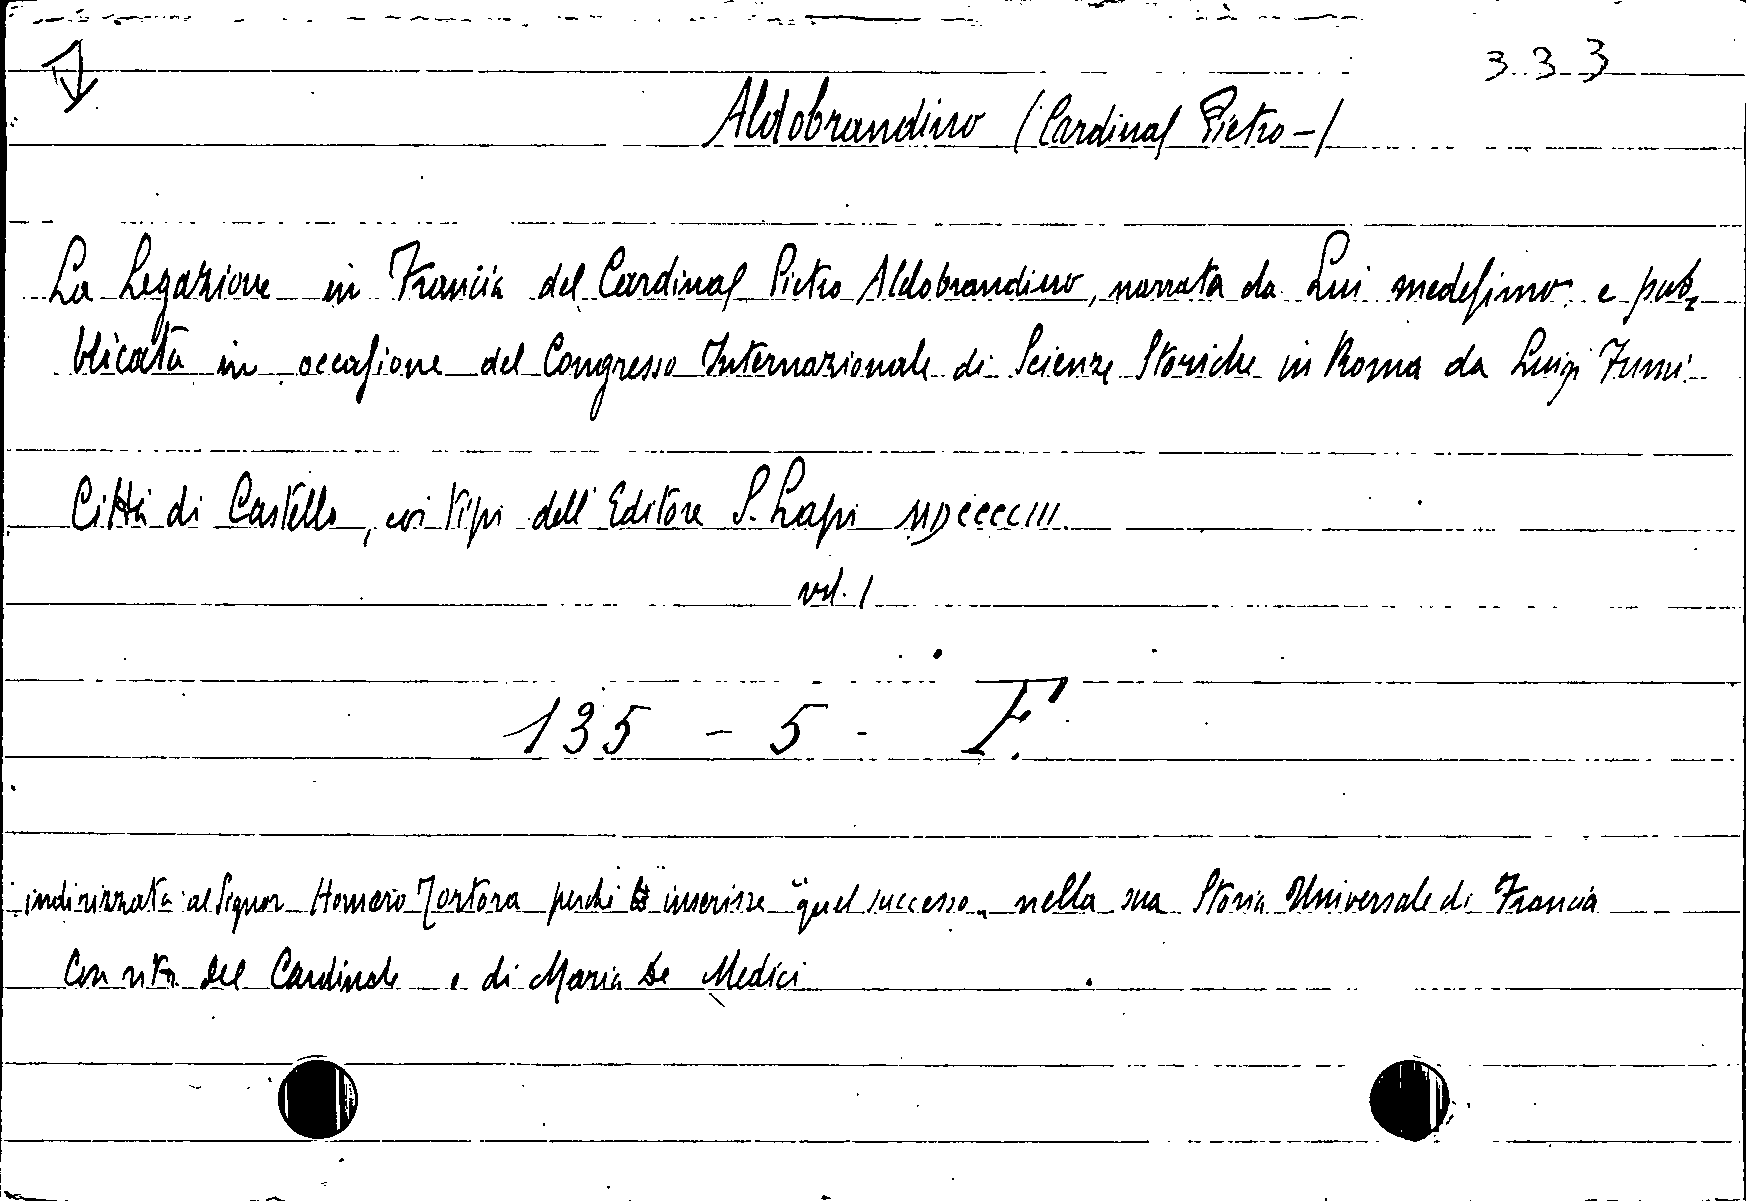 333
Aldobrandino (Cardinal Pietro -)
La Legazione in Francia del Cardinal Pietro Aldobrandino, narrata da Lui medesimo e pub=
blicata in occasione del Congresso Internazionale di Scienze Storiche in Roma da Luigi Fumi
Città di Castello, coi tipi dell'Editore S. Lapi MDCCCCIII.
vol. 1
135 - 5 - F.
indirizzata al Signor Homero Tortora perchè inserisse "quel successo" nella sua Storia Universale di Francia
Con vita del Cardinale e di Maria De Medici